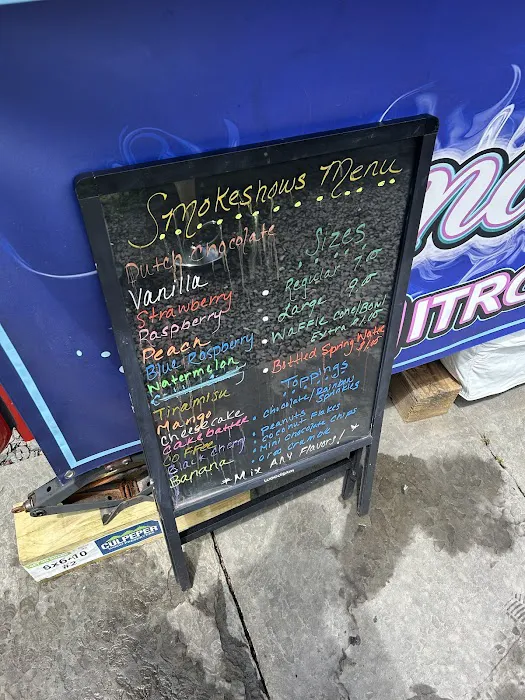 Smokeshows Menu
Dutch Chocolate
Vanilla
Strawberry
Raspberry
Peach
Blue Raspberry
Watermelon
Tiramisu
Mango
Cheesecake
Cakebatter
Coffee
Black Cherry
Banana
Sizes
Regular 7.00
Large 9.00
Waffle Cone/Bowl
Extra
Bottled Spring Water
Toppings
Chocolate/Rainbow
Sprinkles
Peanuts
Coconut Flakes
Mini Chocolate Chips
Oreo Crumble
*Mix Any Flavors!*
ITRO
CULPEPER
6x6-10
#2